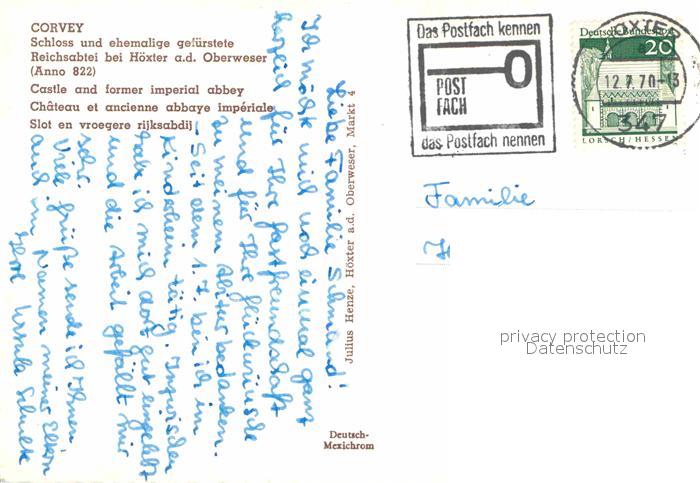 CORVEY
Schloss und ehemalige gefürstete
Reichsabtei bei Höxter a.d. Oberweser
(Anno 822)
Castle and former imperial abbey
Château et ancienne abbaye impériale
Slot en vroegere rijksabdij
Liebe Familie Schmand!
Ich möcht mich noch einmal ganz
herzlich für Ihre Gastfreundschaft
und für Ihre Glückwünsche
zu meinem Abitur bedanken.
- Seit dem 1.7. bin ich im
Kinderheim tätig. Inzwischen
hab ich mich dort gut eingelebt
und die Arbeit gefällt mir
sehr.
Viele Grüße sendet Ihnen
auch im Namen meiner Eltern
Ihre Ursula Schulte
Julius Henze, Höxter a.d. Oberweser, Markt 4
Deutsch-
Mexichrom
Das Postfach kennen
POST
FACH
das Postfach nennen
HÖXTER
12.7.70-13
347
Deutsche Bundespost
20
LORSCH/HESSEN
Familie
privacy protection
Datenschutz